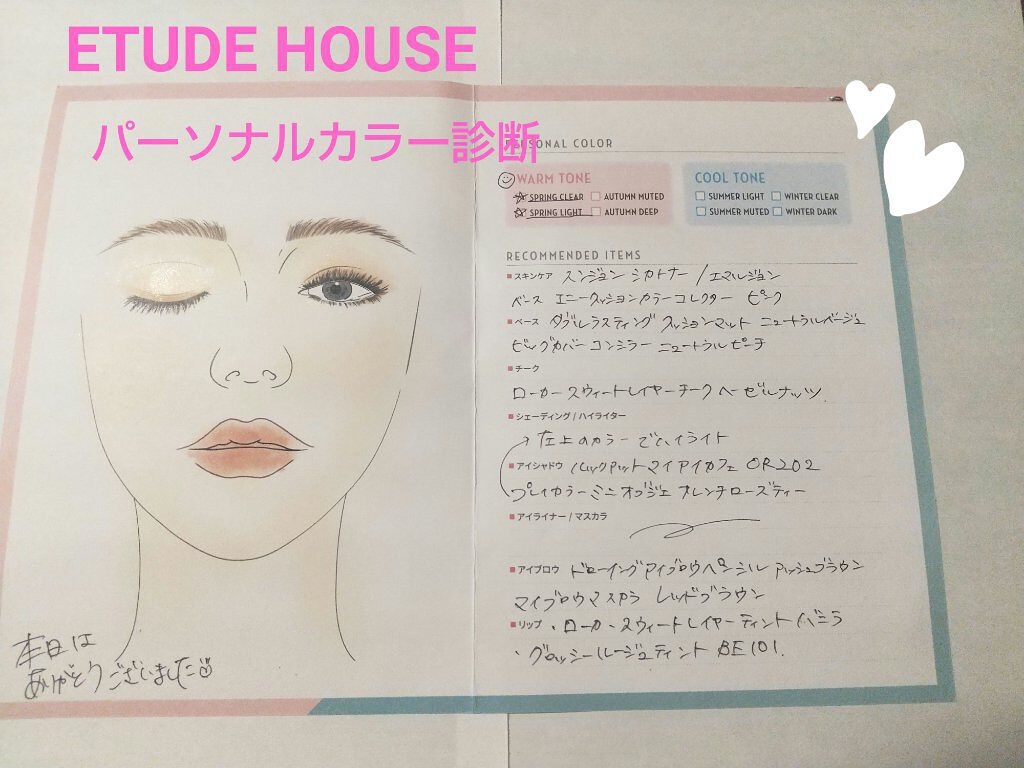 ETUDE HOUSE
パーソナルカラー診断
PERSONAL COLOR
WARM TONE
SPRING CLEAR AUTUMN MUTED
SPRING LIGHT AUTUMN DEEP
COOL TONE
SUMMER LIGHT WINTER CLEAR
SUMMER MUTED WINTER DARK
RECOMMENDED ITEMS
スキンケア スンジョン シカトナー / エマルジョン
ベース エニークッションカラーコレクター ピンク
ベース ダブルラスティング クッションマット ニュートラルベージュ
ビッグカバー コンシーラー ニュートラルピーチ
チーク
ローカースウィートレイヤーチーク ヘーゼルナッツ
シェーディング / ハイライター
左上のカラーでハイライト
アイシャドウ ルックアット マイアイカフェ OR202
プレイカラーミニオブジェ フレンチローズティー
アイライナー / マスカラ
アイブロウ ドローイングアイブロウペンシル アッシュブラウン
マイブロウマスカラ レッドブラウン
リップ ・ローカースウィートレイヤーティント バニラ
・グロッシールージュティント BE101.
本日は
ありがとうございました